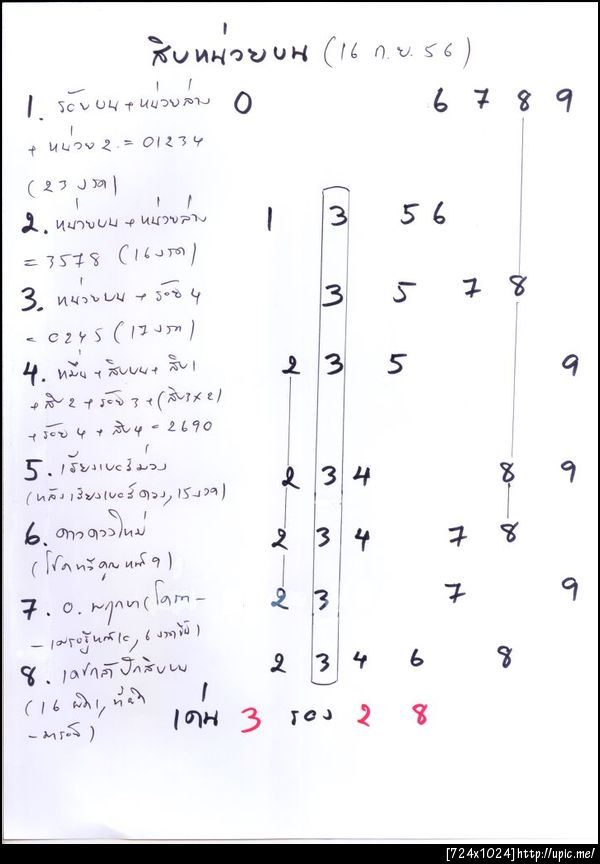 สิบหน่วยบน (16 ก.ย. 56)
1. ร้อยบน + หน่วยล่าง 0 6 7 8 9
+ หน่วย 2 = 01234
(23 งวด)
2. หน่วยบน + หน่วยล่าง 1 3 5 6
= 3578 (16 งวด)
3. หน่วยบน + ร้อย 4 3 5 7 8
= 0245 (17 งวด)
4. หมื่น + สิบบน + สิบ 1 2 3 5 9
+ สิบ 2 + ร้อย 3 + (สิบ 3 x 2)
+ ร้อย 4 + สิบ 4 = 2690
5. เรียงเบอร์ม่วง 2 3 4 8 9
(หลังเรียงเบอร์ดวง, 15 งวด)
6. ดาวดวงใหม่ 2 3 4 7 8
(โชคทวีคูณ 9)
7. อ. พฤกษา 2 3 7 9
8. สิบบน 2 3 4 6 8
(16
เด่น 3 รอง 2 8
[724x1024]http://upic.me/